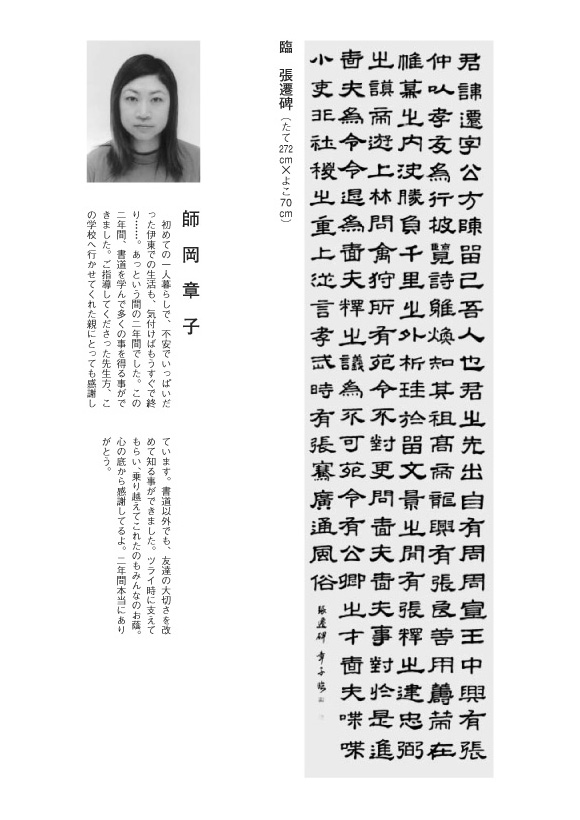 君諱遷字公方陳留己吾人也君之先出自有周周宣王中興有張
仲以孝友為行披覽詩雅煥知其祖高帝龍興有張良善用籌策在
帷幕之内決勝負千里之外析珪於留文景之間有張釋之建忠弼
之謨帝遊上林問禽狩所有苑令不對更問嗇夫嗇夫事對於是進
嗇夫為令令退為嗇夫釋之議為不可苑令有公卿之才嗇夫喋喋
小吏非社稷之重上從言孝武時有張騫廣通風俗 張遷碑 章子臨
臨　張遷碑（たて272cm×よこ70cm）
師岡章子
　初めての一人暮らしで、不安でいっぱいだ
った伊東での生活も、気付けばもうすぐで終
り……。あっという間の二年間でした。この
二年間、書道を学んで多くの事を得る事がで
きました。ご指導してくださった先生方、こ
の学校へ行かせてくれた親にとっても感謝し
ています。書道以外でも、友達の大切さを改
めて知る事ができました。ツライ時に支えて
もらい、乗り越えてこれたのもみんなのお蔭。
心の底から感謝してるよ。二年間本当にあり
がとう。